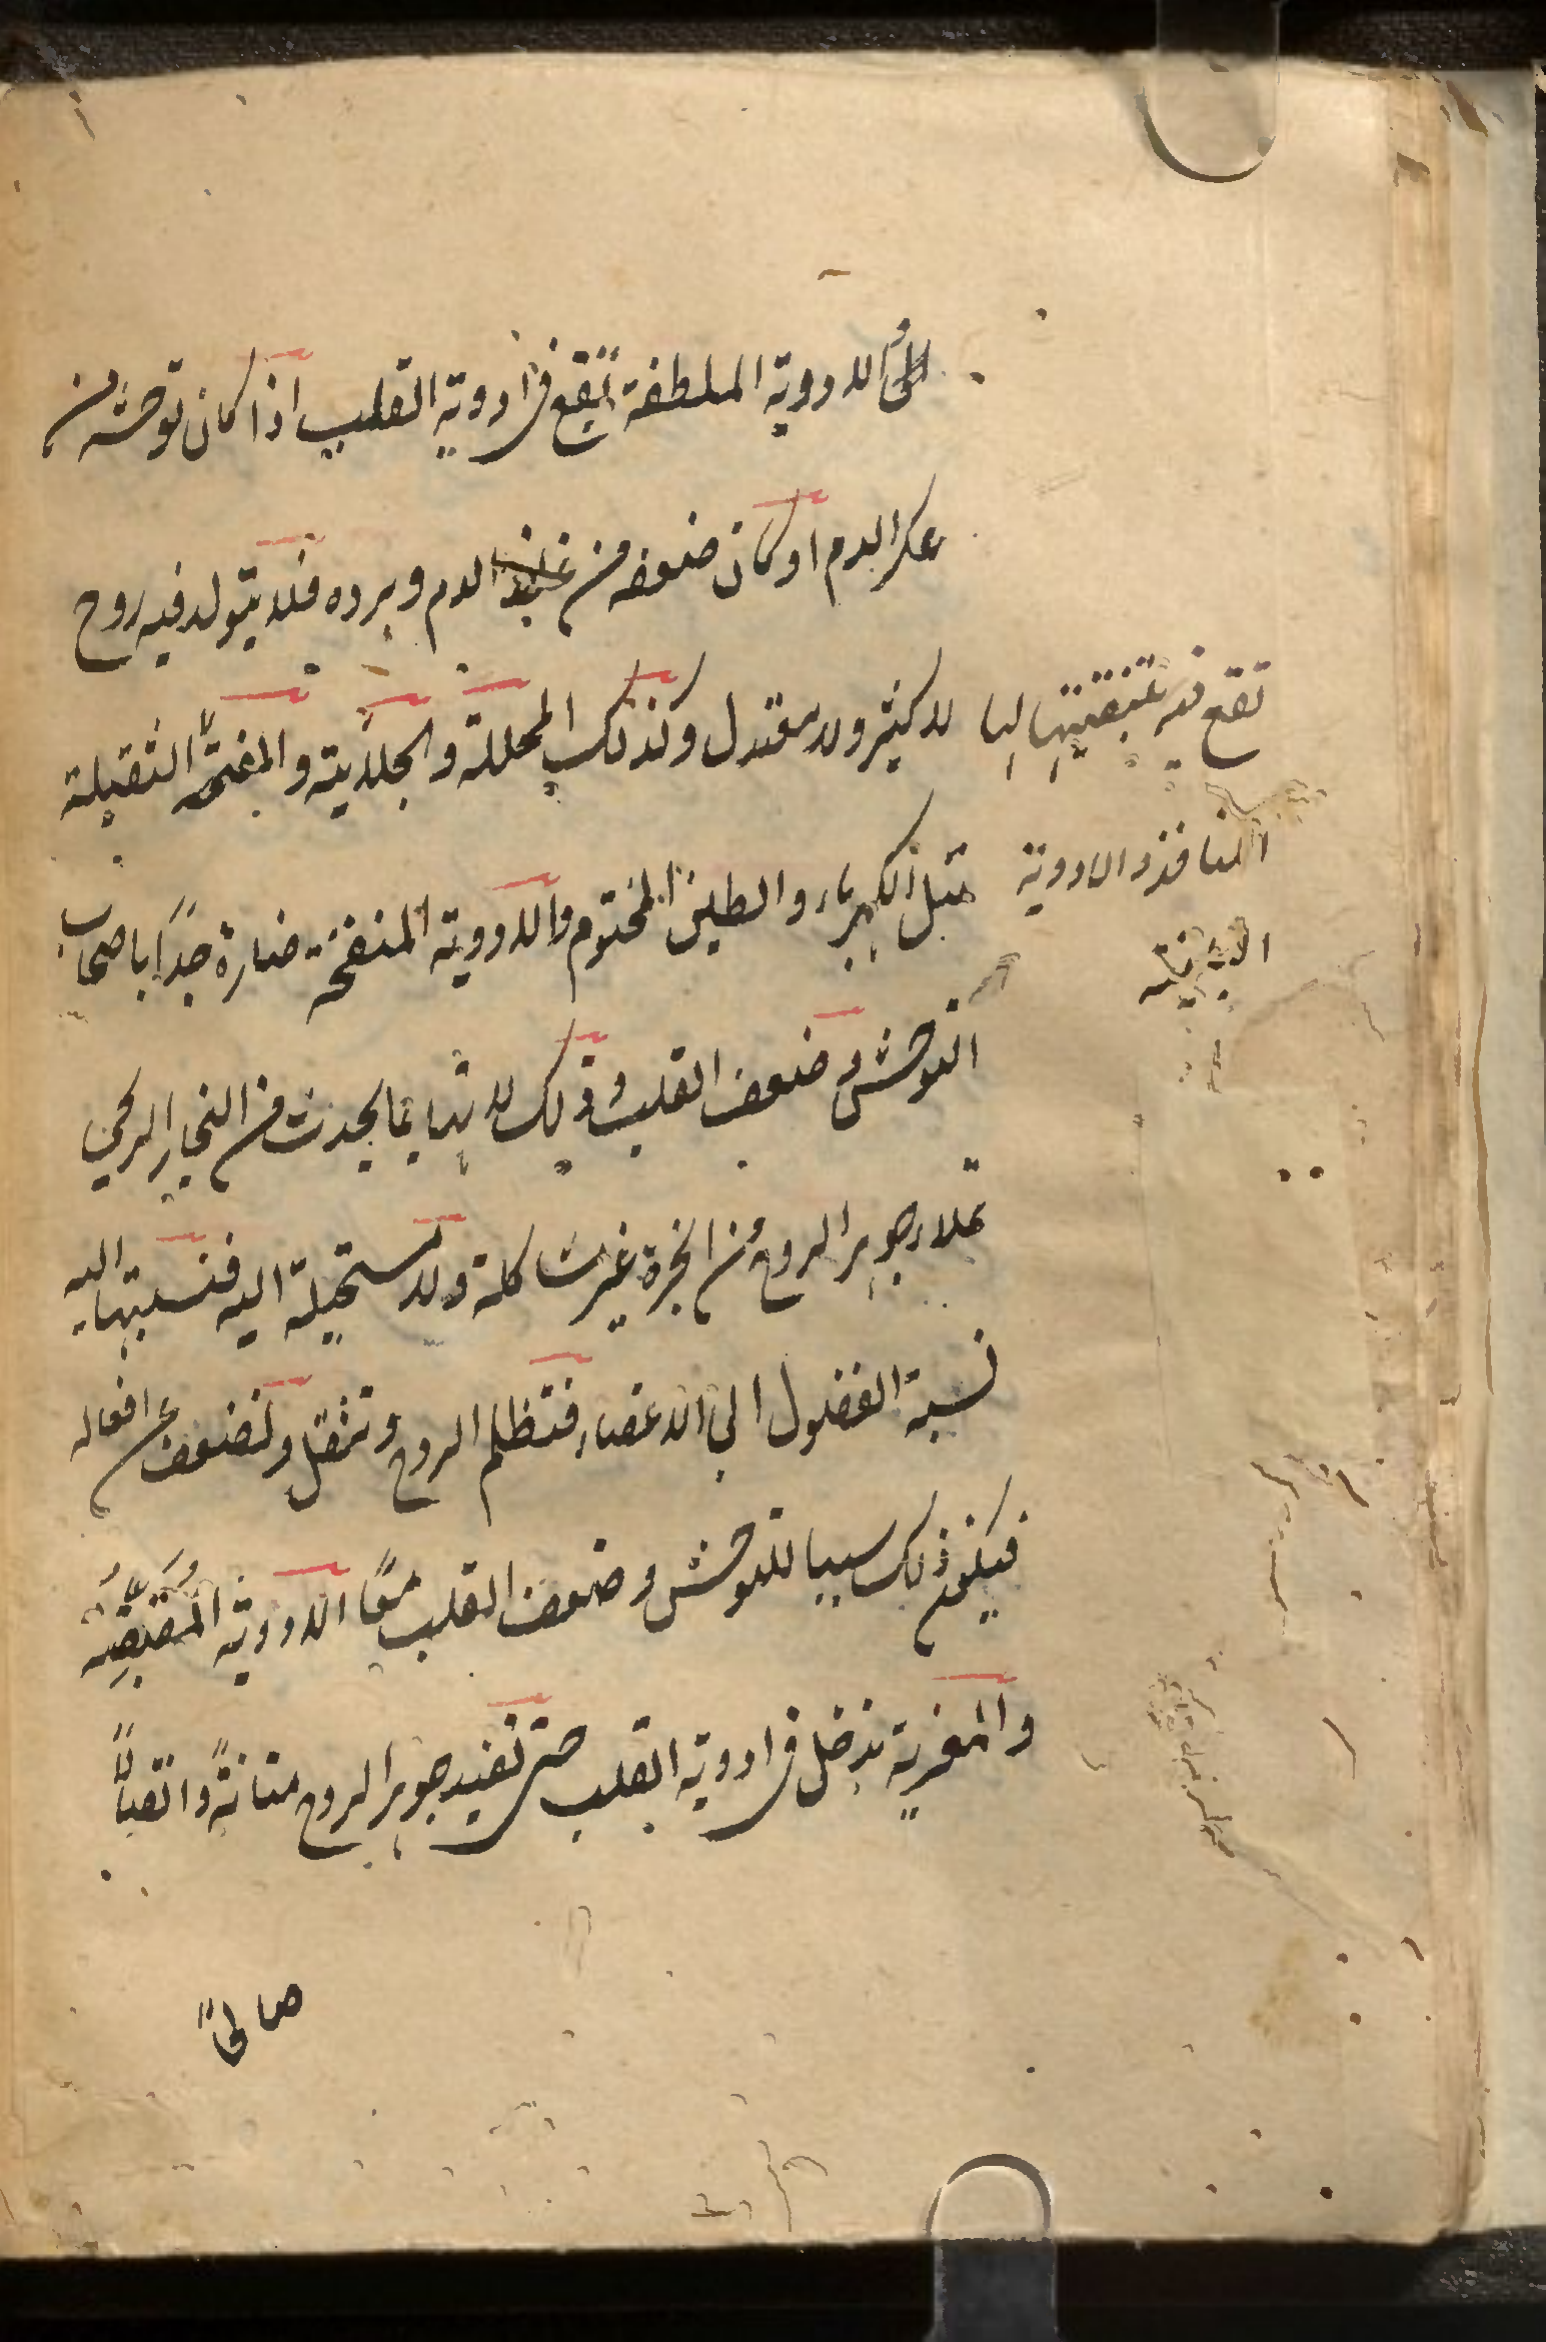 الادوية الملطفة تقع فى ادوية القلب اذا كان توحشه من
عكر الدم او كان ضعفه من غلظ الدم وبرده فلا يتولد فيه روح
لا كثير ولا معتدل وكذلك المحللة والجلاية والمفتحة الثقيلة
تقع فيه لتنقيتها
المنافذ والادوية
مثل الكهرباء والطين المختوم والادوية المنفخة ضارة جدًا باصحاب
التوحش وضعف القلب وذلك لانها بما يحدث من البخار الريحى
تملاء جوهر الروح من ابخرة غير مشاكلة ولا مستحيلة اليه فنسبتها اليه
نسبة الفضول الى الاعضاء فتظلم الروح وتثقل وتضعف عن افعاله
فيكون ذلك سببا للتوحش وضعف القلب معًا الادوية المُقَبِّضة
والمغرية يدخل فى ادوية القلب حتى تفيد جوهر الروح متانةً و
صالحًا